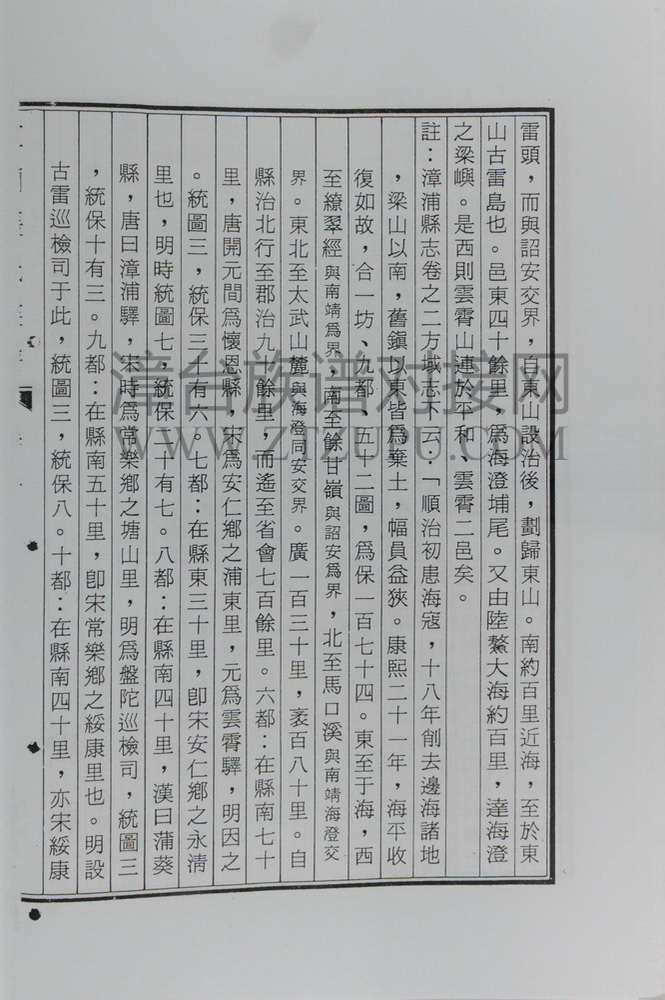 雷頭，而與詔安交界，自東山設治後，劃歸東山。南約百里近海，至於東
山古雷島也。邑東四十餘里，爲海澄埔尾。又由陸鰲大海約百里，達海澄
之梁嶼。是西則雲霄山連於平和、雲霄二邑矣。
註：漳浦縣志卷之二方域志下云：「順治初患海寇，十八年削去邊海諸地
，梁山以南，舊鎮以東皆爲棄土，幅員益狹。康熙二十一年，海平收
復如故，合一坊、九都、五十二圖，爲保一百七十四。東至于海，西
至繚翠經與南靖爲界，南至餘甘嶺與詔安爲界，北至馬口溪與南靖海澄交
界。東北至太武山麓與海澄同安交界。廣一百三十里，袤百八十里。自
縣治北行至郡治九十餘里，而遙至省會七百餘里。六都：在縣南七十
里，唐開元間爲懷恩縣，宋爲安仁鄉之浦東里，元爲雲霄驛，明因之
。統圖三，統保三十有六。七都：在縣東三十里，卽宋安仁鄉之永淸
里也，明時統圖七，統保二十有七。八都：在縣南四十里，漢曰蒲葵
縣，唐曰漳浦驛，宋時爲常樂鄉之塘山里，明爲盤陀巡檢司，統圖三
，統保十有三。九都：在縣南五十里，卽宋常樂鄉之綏康里也。明設
古雷巡檢司于此，統圖三，統保八。十都：在縣南四十里，亦宋綏康
漳台族谱对接网
WWW.ZTZUPU.COM